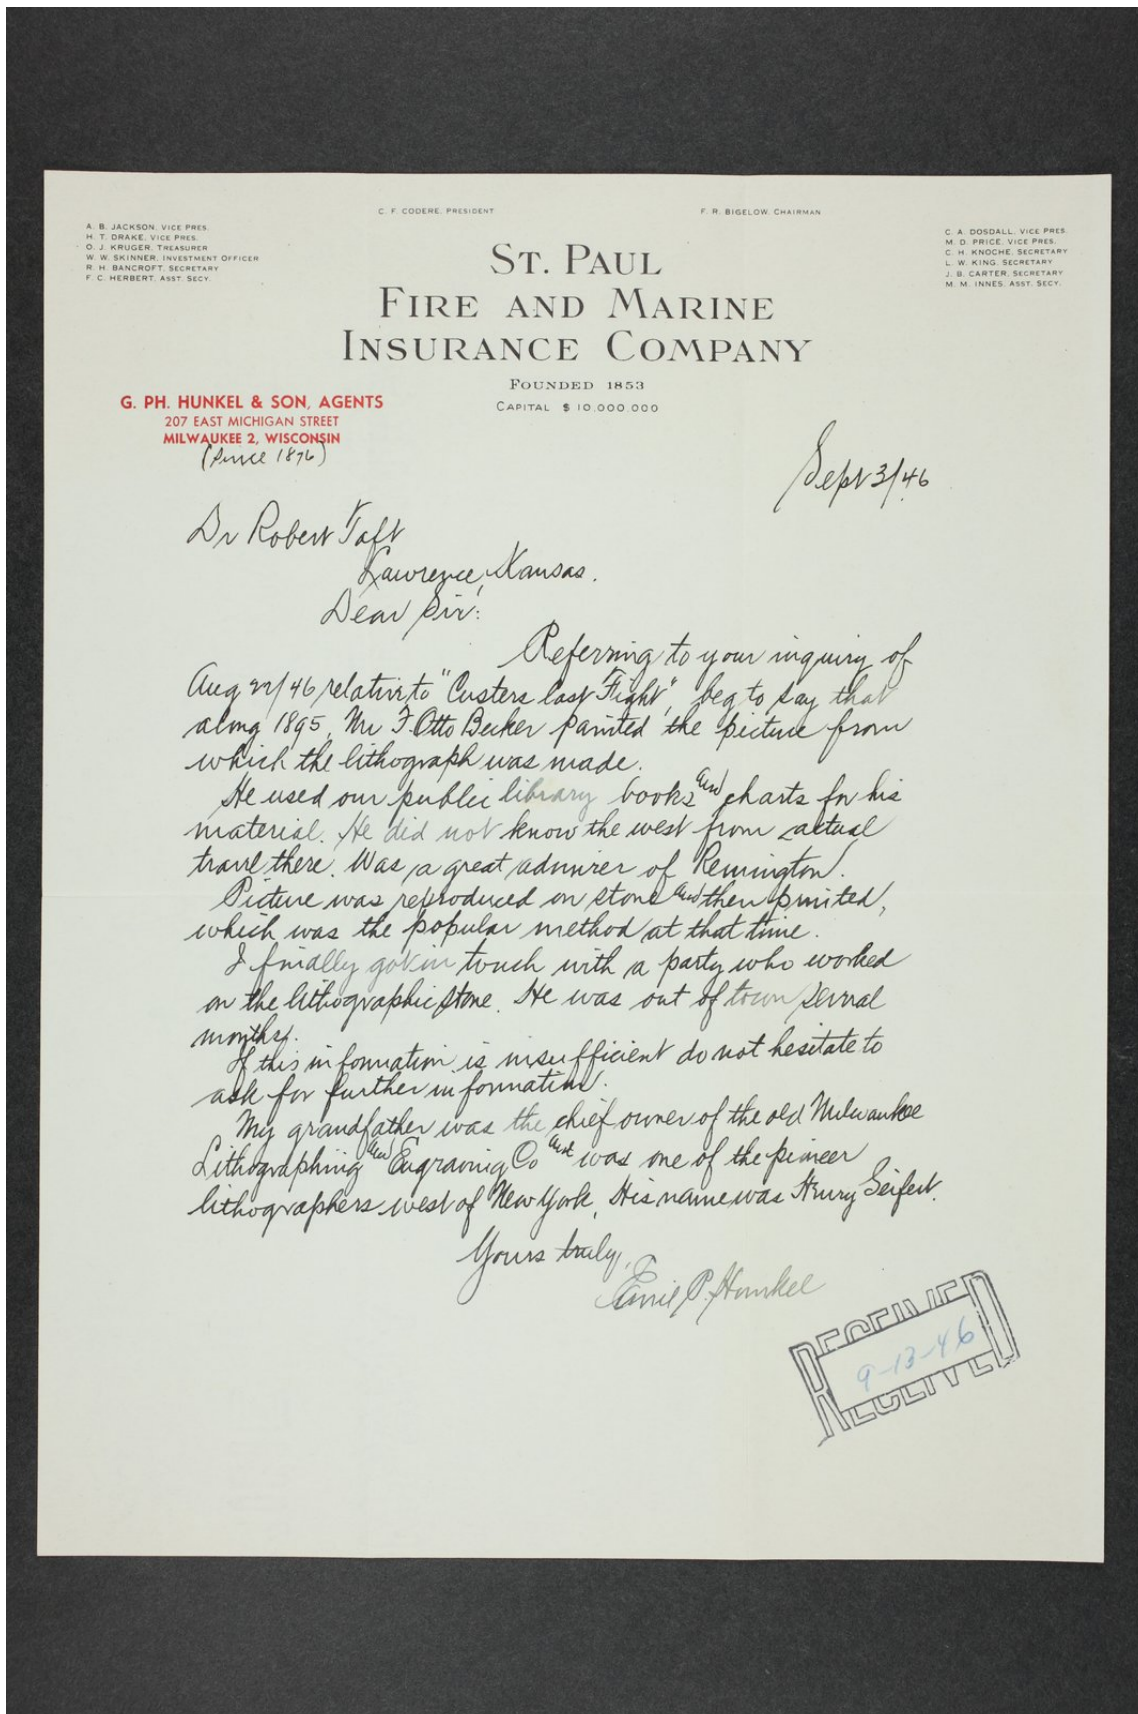 C. F. CODERE, PRESIDENT
F. R. BIGELOW, CHAIRMAN
A. B. JACKSON, VICE PRES.
H. T. DRAKE, VICE PRES.
O. J. KRUGER, TREASURER
W. W. SKINNER, INVESTMENT OFFICER
R. H. BANCROFT, SECRETARY
F. C. HERBERT, ASST. SECY.
C. A. DOSDALL, VICE PRES.
M. D. PRICE, VICE PRES.
C. H. KNOCHE, SECRETARY
L. W. KING, SECRETARY
J. B. CARTER, SECRETARY
M. M. INNES, ASST. SECY.
ST. PAUL
FIRE AND MARINE
INSURANCE COMPANY
FOUNDED 1853
CAPITAL $ 10,000,000
G. PH. HUNKEL & SON, AGENTS
207 EAST MICHIGAN STREET
MILWAUKEE 2, WISCONSIN
(Since 1876)
Sept 3/46
Dr Robert Taft
Lawrence, Kansas.
Dear Sir:
Referring to your inquiry of
Aug 22/46 relative to "Custers last "Fight", beg to say that
along 1895, Mr F. Otto Becker painted the picture from
which the lithograph was made.
He used our public library books and charts for his
material. He did not know the west from actual
travel there. Was a great admirer of Remington.
Picture was reproduced on stone and then printed,
which was the popular method at that time.
I finally got in touch with a party who worked
on the lithographic stone. He was out of town several
months.
If this information is insufficient do not hesitate to
ask for further information.
My grandfather was the chief owner of the old Milwaukee
Lithographing and Engraving Co and was one of the pioneer
lithographers west of New York. His name was Henry Seifert.
Yours truly,
Emil P. Hunkel
RECEIVED
9-13-46
RECEIVED